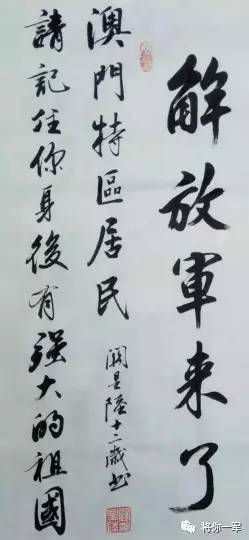 解放軍来了
澳門特區居民
請記住你身後有强大的祖國
十二歲书
将你一军